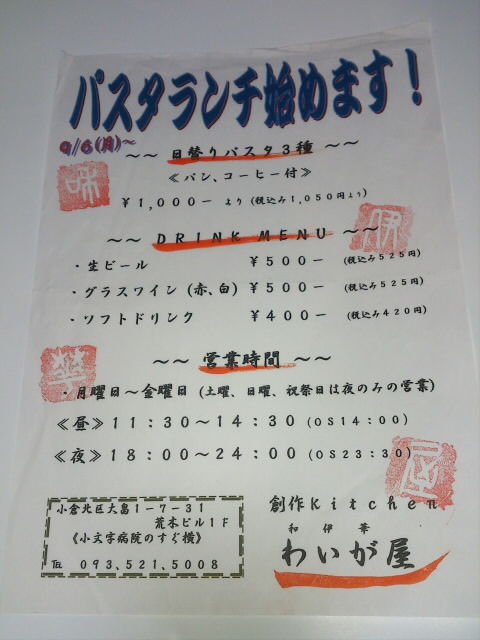 パスタランチ始めます！
9/6(月)～
～～ 日替りパスタ3種 ～～
≪パン、コーヒー付≫
￥1,000－ より (税込み1,050円より)
～～ DRINK MENU ～～
・生ビール ￥500－ (税込み525円)
・グラスワイン (赤、白) ￥500－ (税込み525円)
・ソフトドリンク ￥400－ (税込み420円)
～～ 営業時間 ～～
・月曜日～金曜日 (土曜、日曜、祝祭日は夜のみの営業)
≪昼≫11:30～14:30 (OS14:00)
≪夜≫18:00～24:00 (OS23:30)
小倉北区大畠1-7-31
荒木ビル1F
《小文字病院のすぐ横》
℡ 093.521.5008
創作Kitchen
和 伊 華
わいが屋
和
伊
華
屋